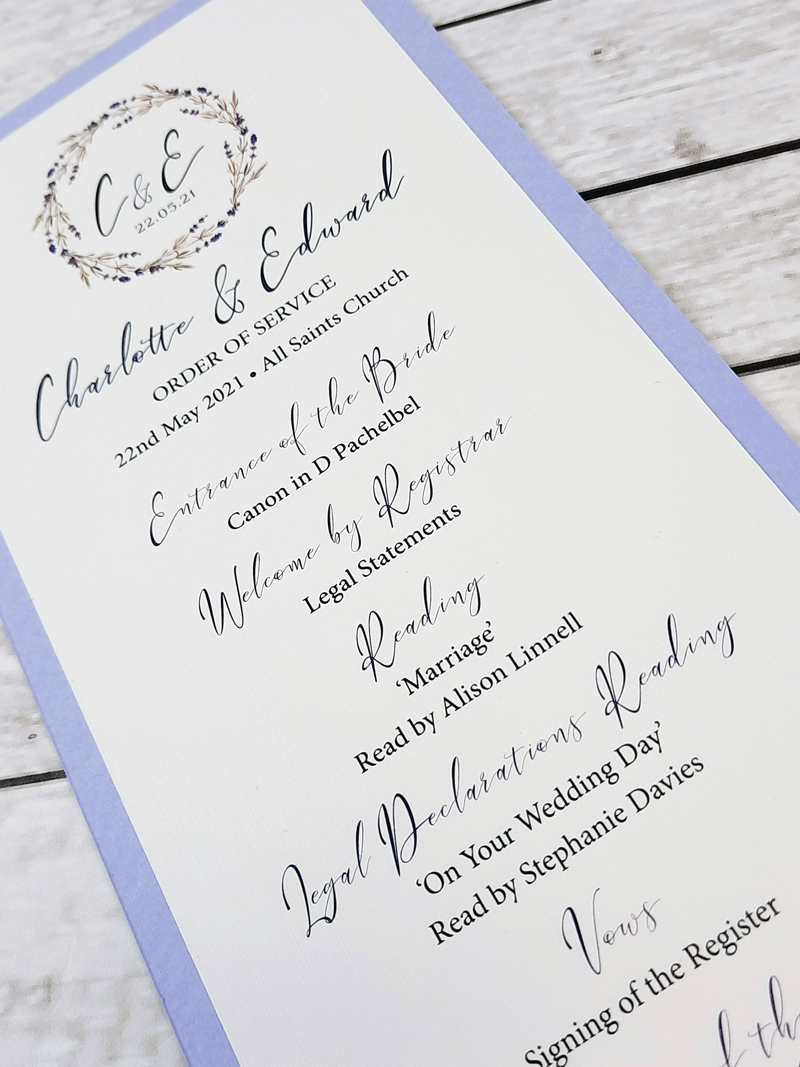 C & E
22.05.21
Charlotte & Edward
ORDER OF SERVICE
22nd May 2021 • All Saints Church
Entrance of the Bride
Canon in D Pachelbel
Welcome by Registrar
Legal Statements
Reading
‘Marriage’
Read by Alison Linnell
Legal Declarations Reading
‘On Your Wedding Day’
Read by Stephanie Davies
Vows
Signing of the Register